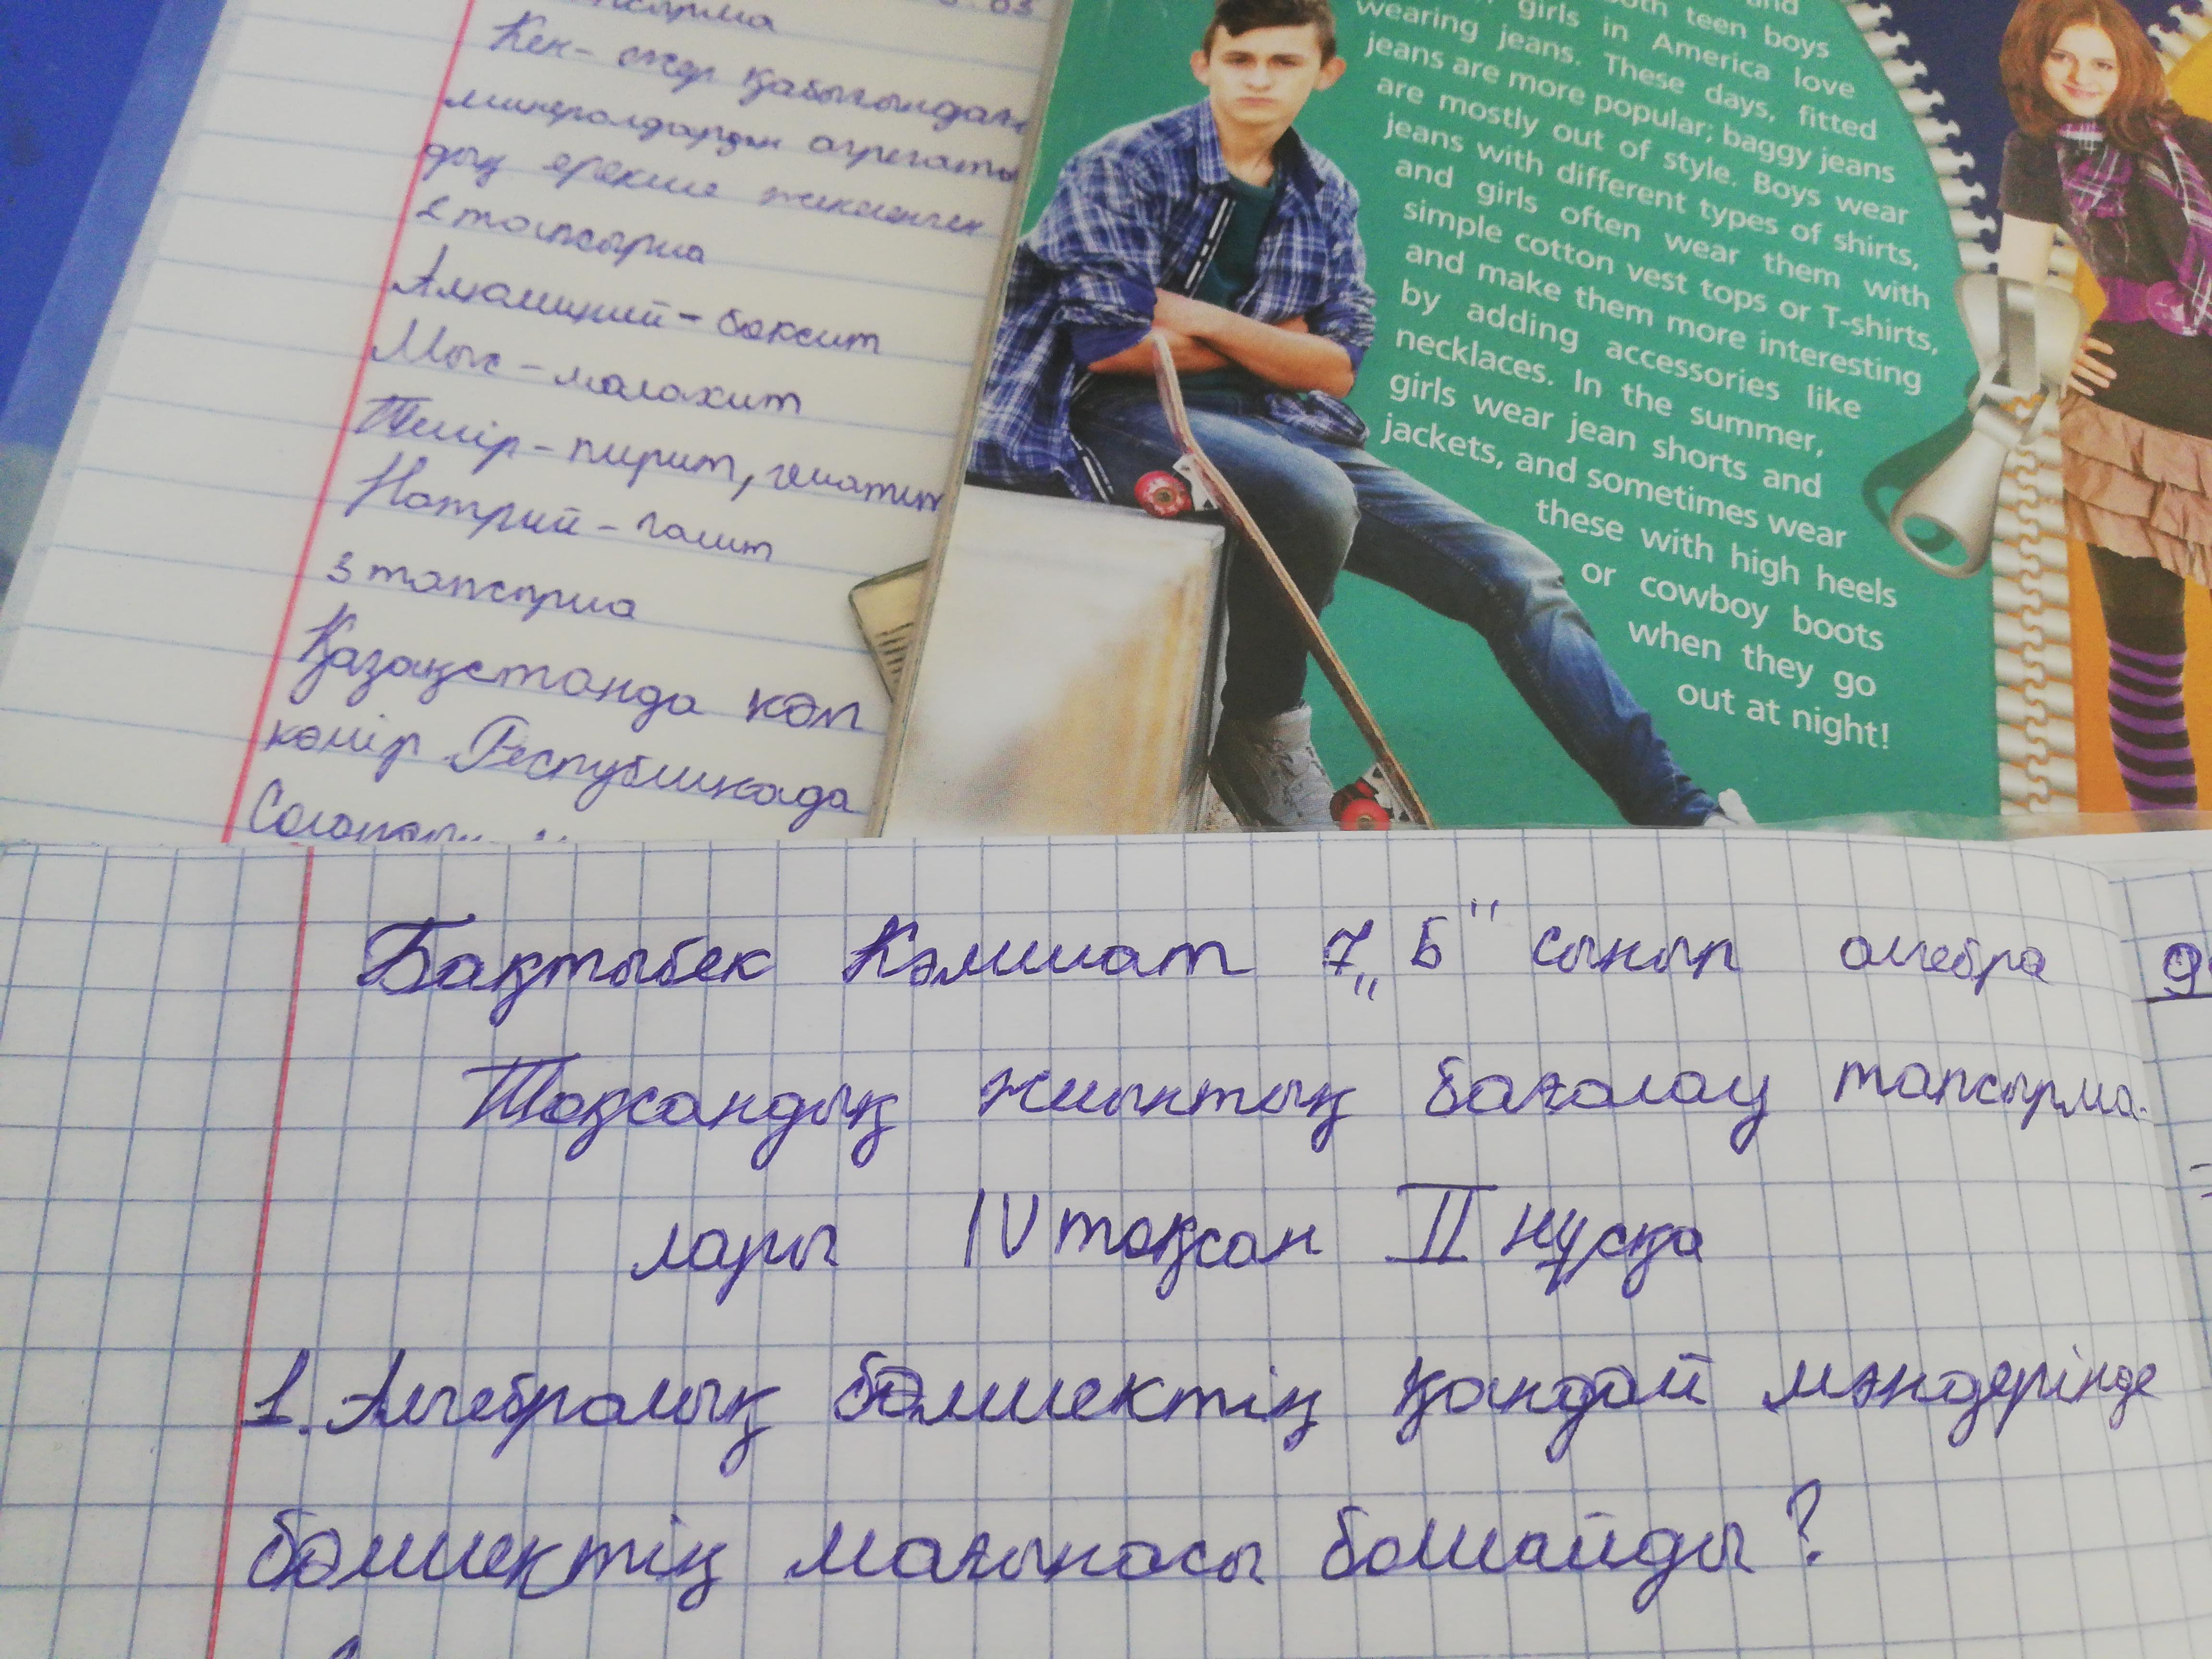 Кен- жер қабығындағы
минералдардың агрегаты
дың ерекше
2 тапсырма
Алюминий - боксит
Мыс - малахит
Темір - пирит, гематит
Натрий - галит
3 тапсырма
Қазақстанда көп
көмір Республикада
and
both teen boys
girls in America love
wearing jeans. These days, fitted
jeans are more popular; baggy jeans
are mostly out of style. Boys wear
jeans with different types of shirts,
and girls often wear them with
simple cotton vest tops or T-shirts,
and make them more interesting
by adding accessories like
necklaces. In the summer,
girls wear jean shorts and
jackets, and sometimes wear
these with high heels
or cowboy boots
when they go
out at night!
Бақтыбек Кәмшат 7 „Б" сынып алгебра
Тоқсандық жиынтық бағалау тапсырма-
лары IV тоқсан II нұсқа
1. Алгебралық бөлшектің қандай мәндерінде
бөлшектің мағынасы болмайды?